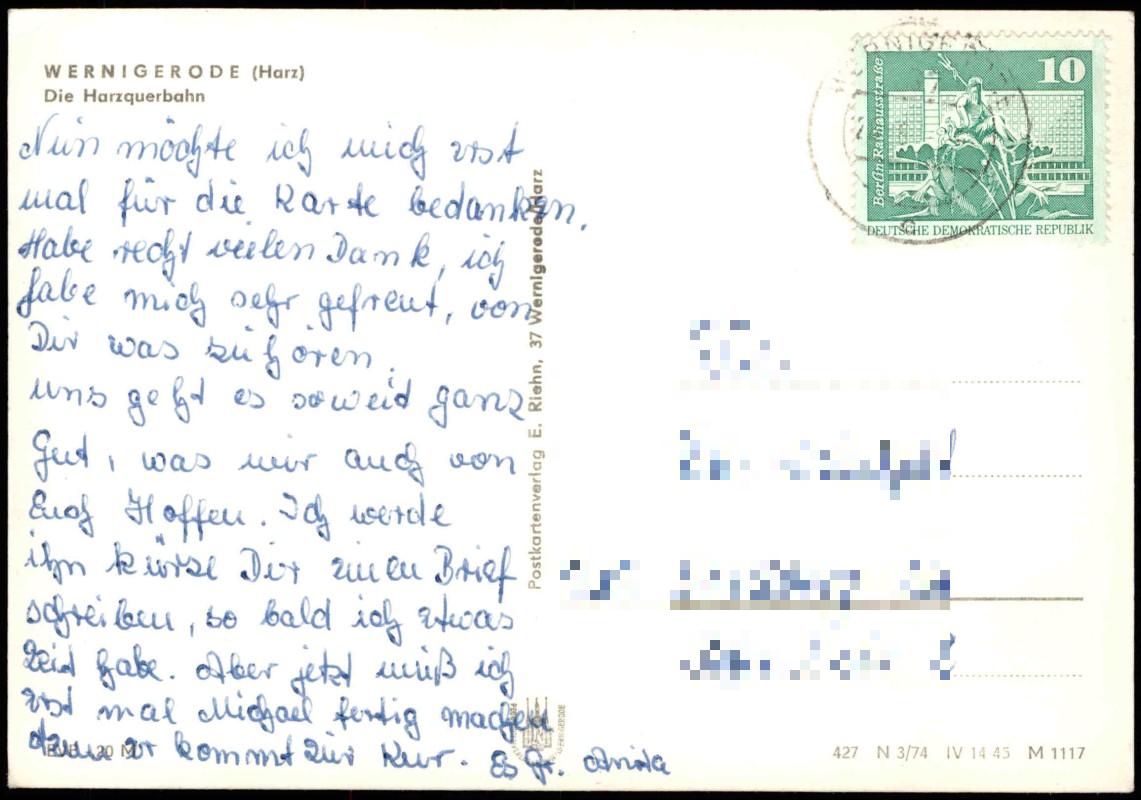 WERNIGERODE (Harz)
Die Harzquerbahn
Nun möchte ich mich erst
mal für die Karte bedanken.
Habe recht vielen Dank, ich
habe mich sehr gefreut, von
Dir was zu hören.
uns geht es soweid ganz
Gut, was wir auch von
Euch Hoffen. Ich werde
ihn kürze Dir einen Brief
schreiben, so bald ich etwas
Zeit habe. Aber jetzt muß ich
erst mal Michael fertig machen
denn er kommt zur Kur. Es gr. Anita
Postkartenverlag E. Riehn, 37 Wernigerode/Harz
WERNIGERODE
10
Berlin-Rathausstraße
DEUTSCHE DEMOKRATISCHE REPUBLIK
427 N 3/74 IV 14 45 M 1117